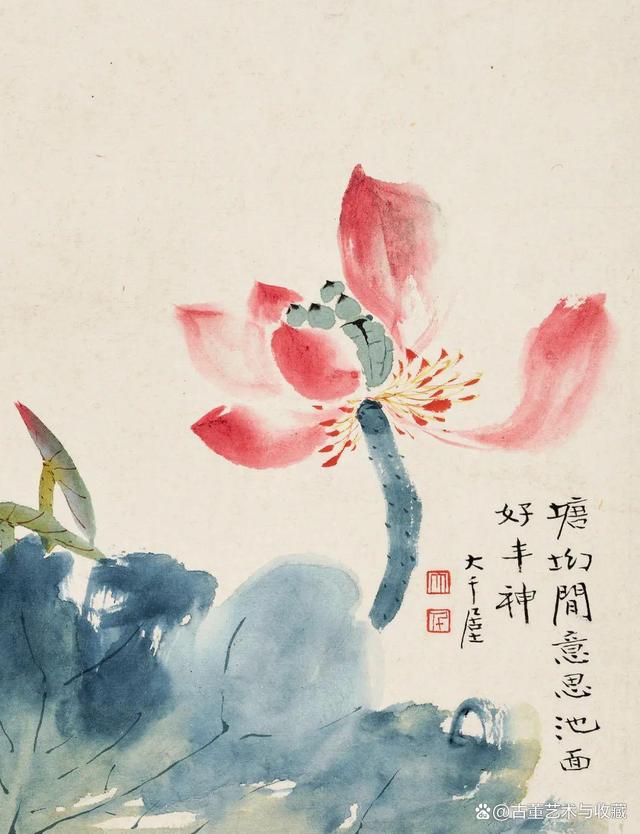 塘坳閒意思池面
好丰神
大千居士
@古董艺术与收藏